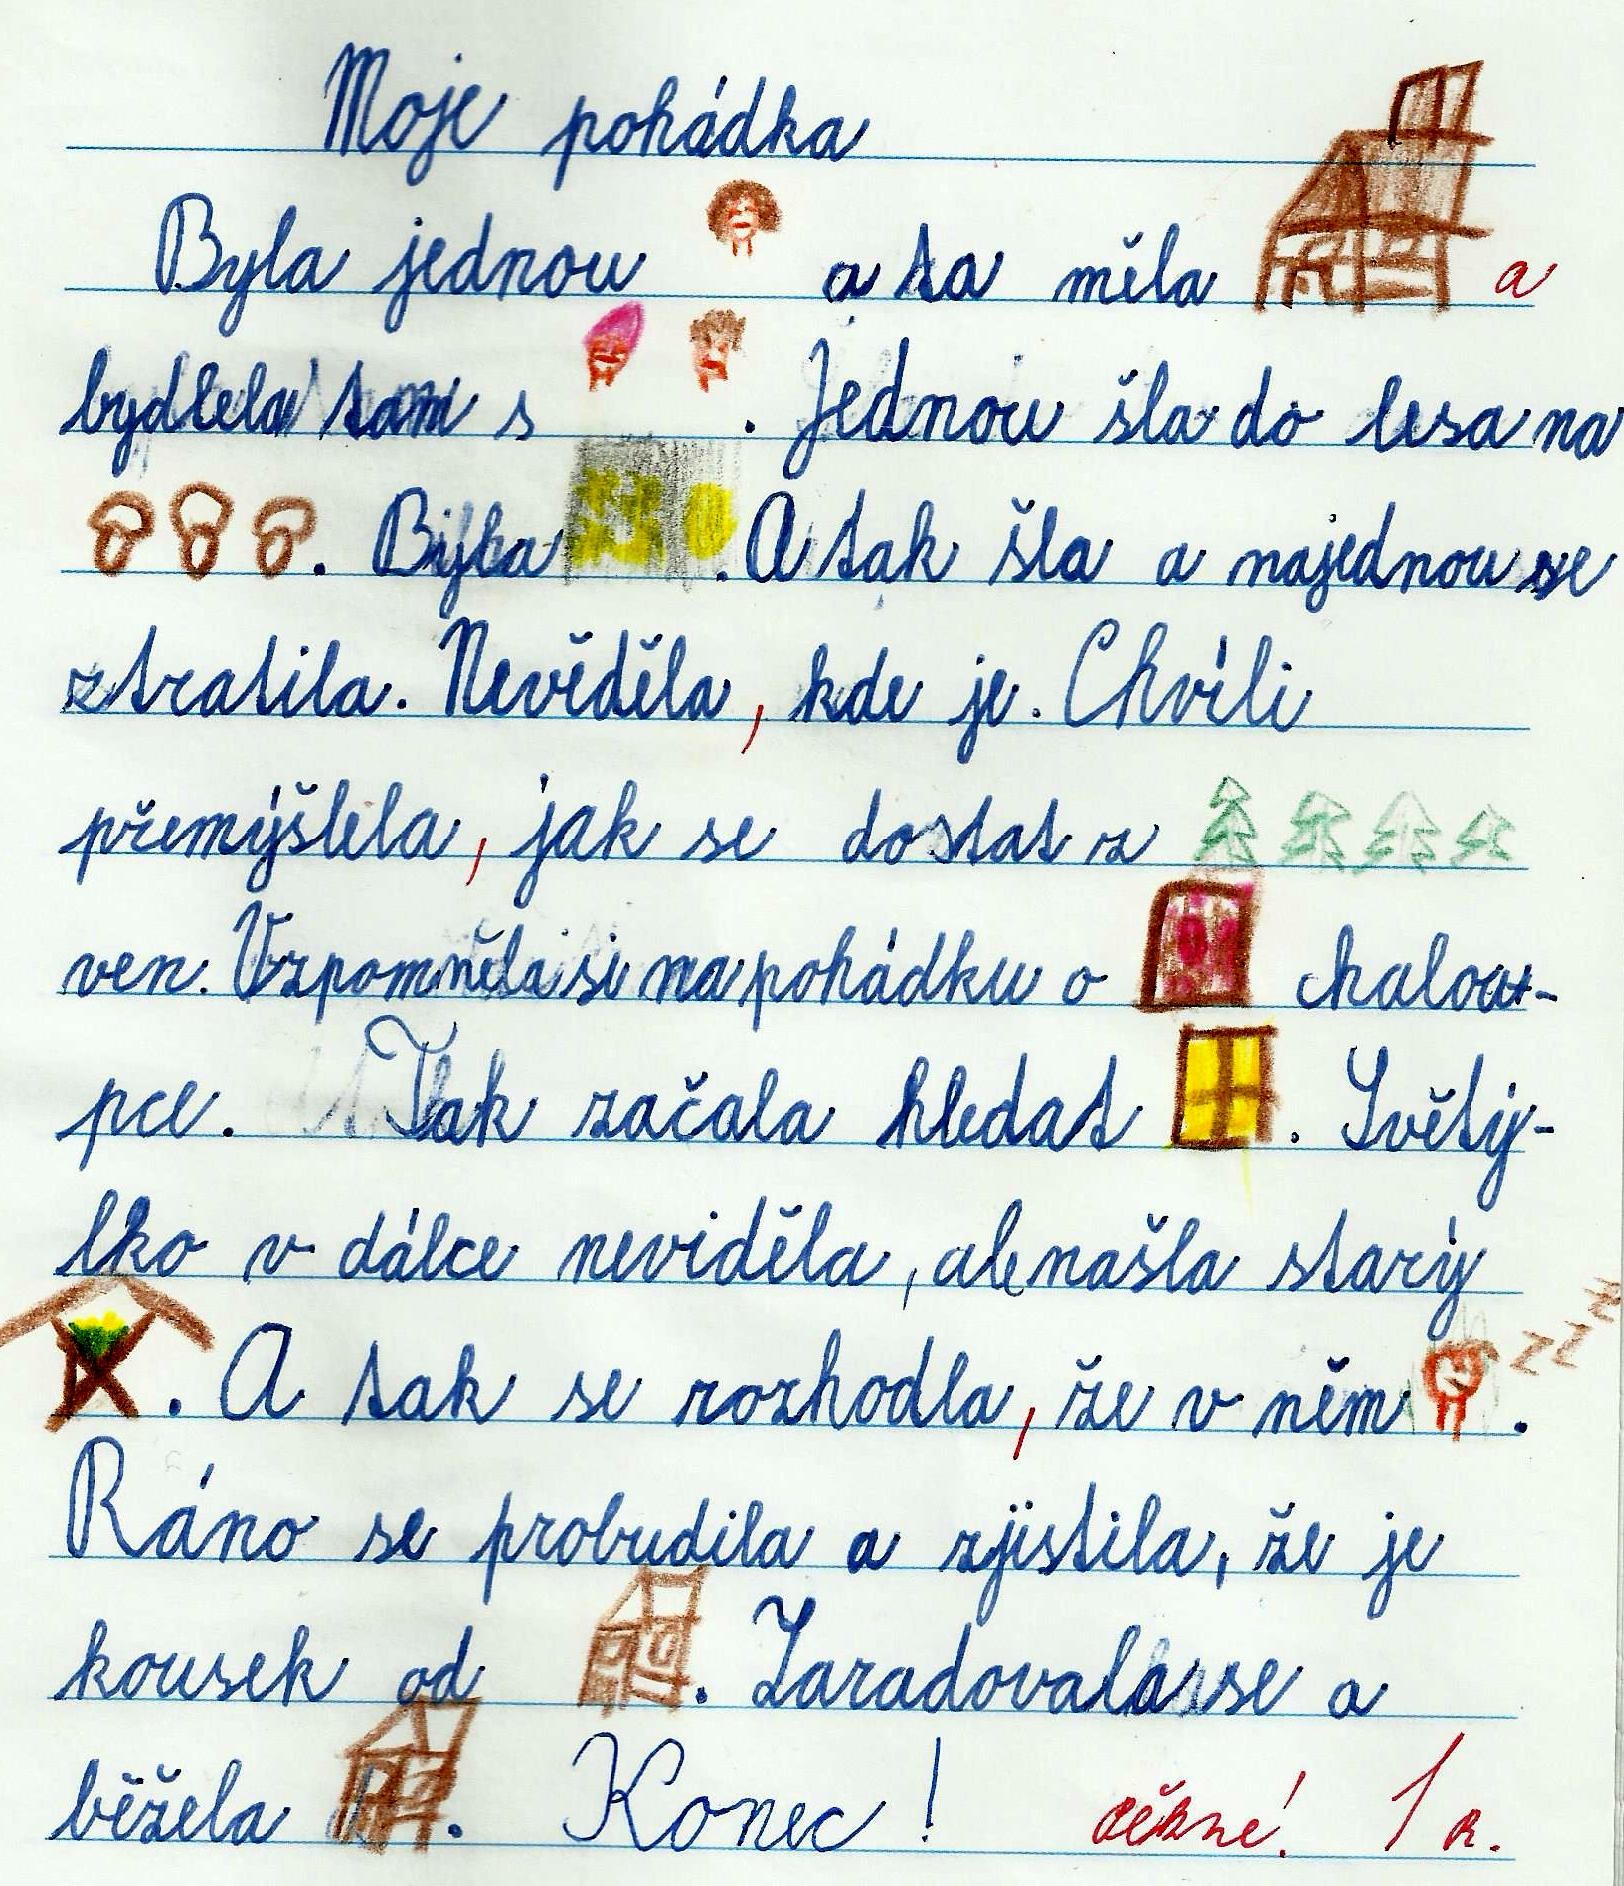 Moje pohádka
Byla jednou a ta měla a
bydlela tam s . Jednou šla do lesa na
. Byla . A tak šla a najednou se
ztratila. Nevěděla, kde je. Chvíli
přemýšlela, jak se dostat z
ven. Vzpomněla si na pohádku o chalou-
pce. Tak začala hledat . Světý-
lko v dálce neviděla, ale našla starý
. A tak se rozhodla, že v něm zzz .
Ráno se probudila a zjistila, že je
kousek od . Zaradovala se a
běžela . Konec! pěkné! 1 R.